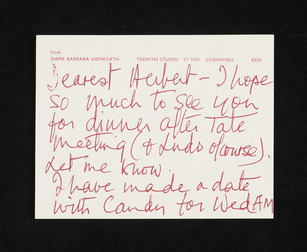 from:
DAME BARBARA HEPWORTH TREWYN STUDIO ST IVES CORNWALL 6226
Dearest Herbert – I hope
so much to see you
for dinner after Tate
meeting (& Ludo of course).
Let me know.
I have made a date
with for Wed AM